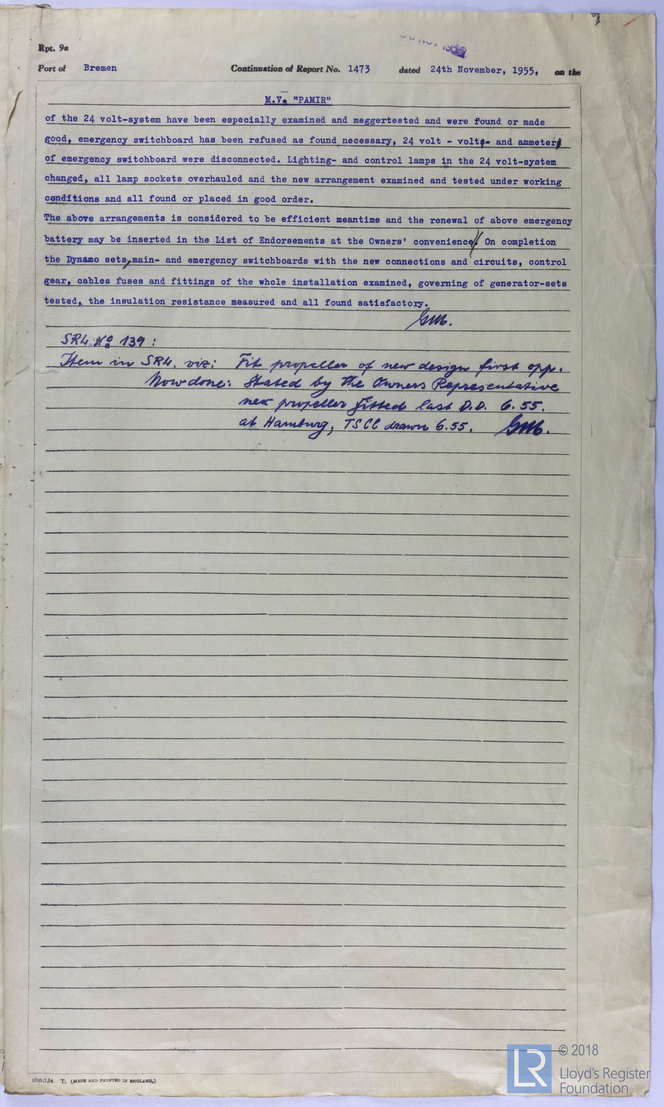 Rpt. 9a
Port of Bremen Continuation of Report No. 1473 dated 24th November, 1955, on the
M.V. "PAMIR"
of the 24 volt-system have been especially examined and meggertested and were found or made
good, emergency switchboard has been refused as found necessary, 24 volt - volt- and ammeter
of emergency switchboard were disconnected. Lighting- and control lamps in the 24 volt-system
changed, all lamp sockets overhauled and the new arrangement examined and tested under working
conditions and all found or placed in good order.
The above arrangements is considered to be efficient meantime and the renewal of above emergency
battery may be inserted in the List of Endorsements at the Owners' convenience. On completion
the Dynamo sets, main- and emergency switchboards with the new connections and circuits, control
gear, cables fuses and fittings of the whole installation examined, governing of generator-sets
tested, the insulation resistance measured and all found satisfactory.
SRL. No 139 :
Item in SRL. viz: Fit propeller of new design first opp.
Now done: Stated by the Owners Representative
new propeller fitted last D.D. 6.55.
at Hamburg, TSCL drawn 6.55.
T. (MADE AND PRINTED IN ENGLAND.)
LR
© 2018
Lloyd's Register
Foundation